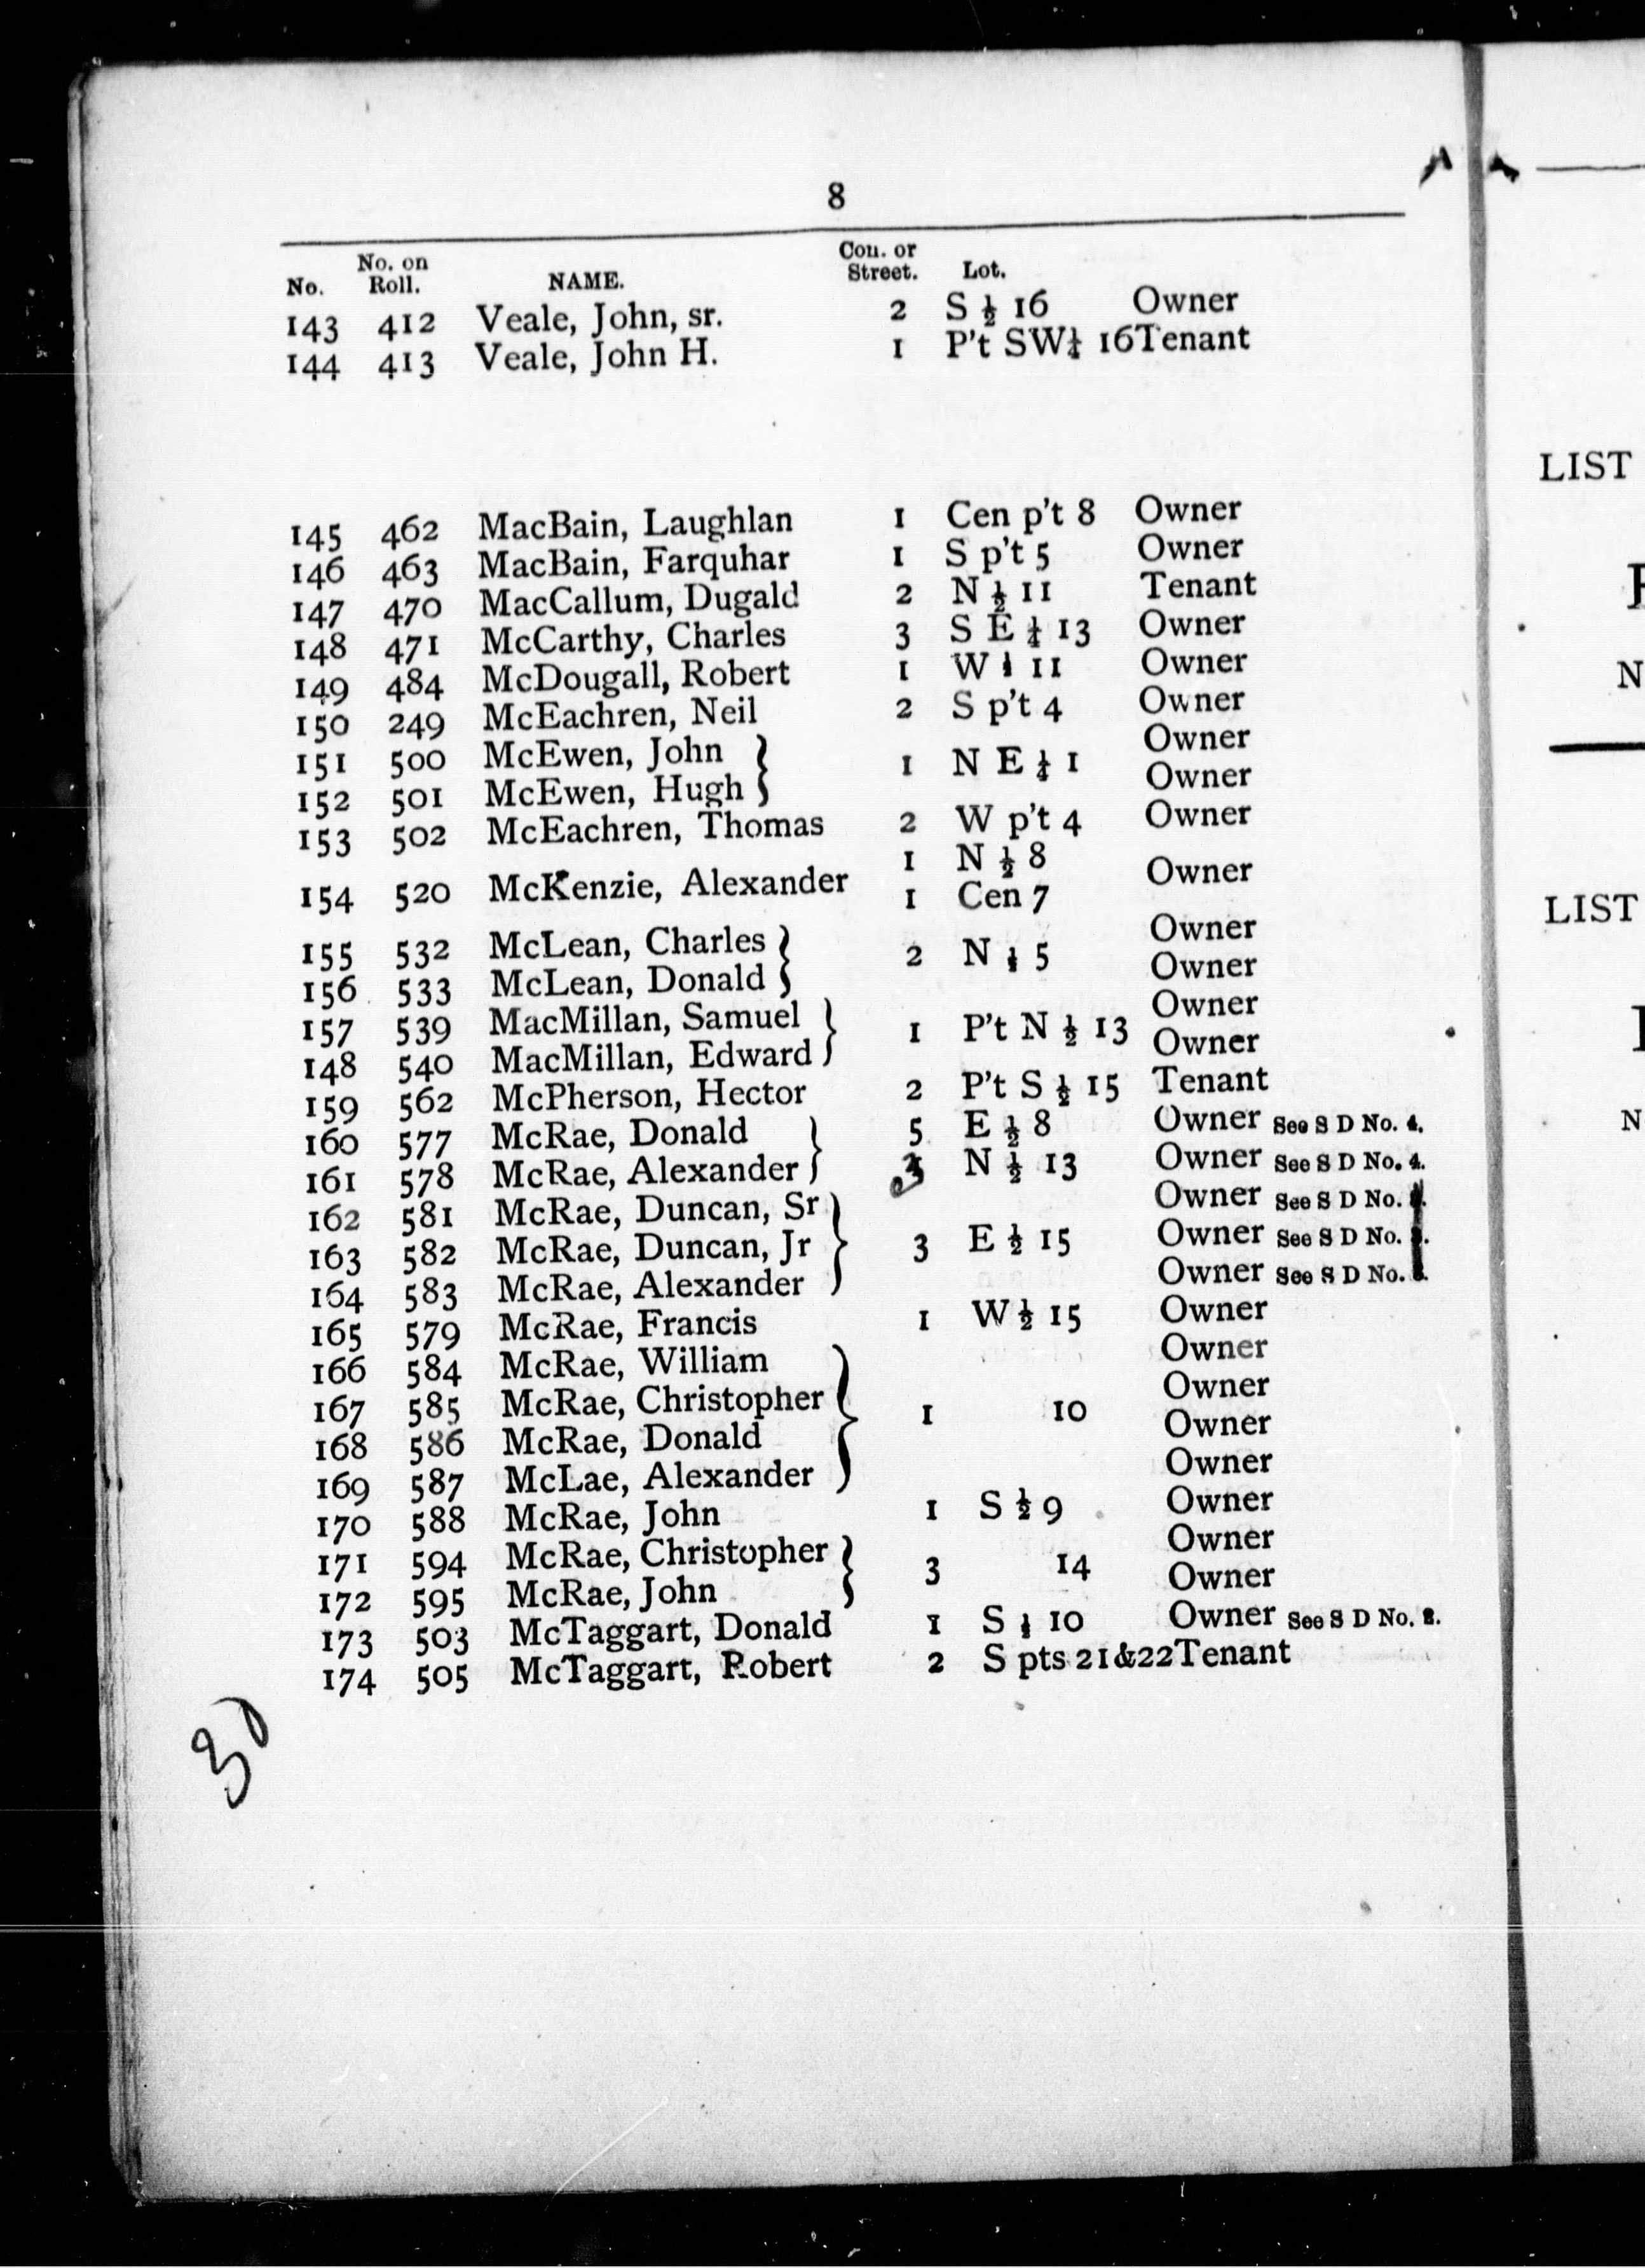 8
No. No. on Roll. NAME. Con. or Street. Lot.
143 412 Veale, John, sr. 2 S ½ 16 Owner
144 413 Veale, John H. 1 P't SW¼ 16 Tenant
145 462 MacBain, Laughlan 1 Cen p't 8 Owner
146 463 MacBain, Farquhar 1 S p't 5 Owner
147 470 MacCallum, Dugald 2 N ½ 11 Tenant
148 471 McCarthy, Charles 3 S E ¼ 13 Owner
149 484 McDougall, Robert 1 W 11 Owner
150 249 McEachren, Neil 2 S p't 4 Owner
151 500 McEwen, John } 1 N E ¼ 1 Owner
152 501 McEwen, Hugh } Owner
153 502 McEachren, Thomas 2 W p't 4 Owner
1 N ½ 8
154 520 McKenzie, Alexander Owner
1 Cen 7
155 532 McLean, Charles } 2 N 5 Owner
156 533 McLean, Donald } Owner
157 539 MacMillan, Samuel } 1 P't N ½ 13 Owner
148 540 MacMillan, Edward } Owner
159 562 McPherson, Hector 2 P't S ½ 15 Tenant
160 577 McRae, Donald } 5 E ½ 8 Owner See S D No. 4.
161 578 McRae, Alexander } N ½ 13 Owner See S D No. 4.
162 581 McRae, Duncan, Sr } Owner See S D No.
163 582 McRae, Duncan, Jr } 3 E ½ 15 Owner See S D No.
164 583 McRae, Alexander } Owner See S D No.
165 579 McRae, Francis 1 W ½ 15 Owner
166 584 McRae, William } Owner
167 585 McRae, Christopher } 1 10 Owner
168 586 McRae, Donald } Owner
169 587 McLae, Alexander } Owner
170 588 McRae, John 1 S ½ 9 Owner
171 594 McRae, Christopher } 3 14 Owner
172 595 McRae, John } Owner
173 503 McTaggart, Donald 1 S 10 Owner See S D No.
174 505 McTaggart, Robert 2 S pts 21&22 Tenant
30
LIST
N
LIST
N